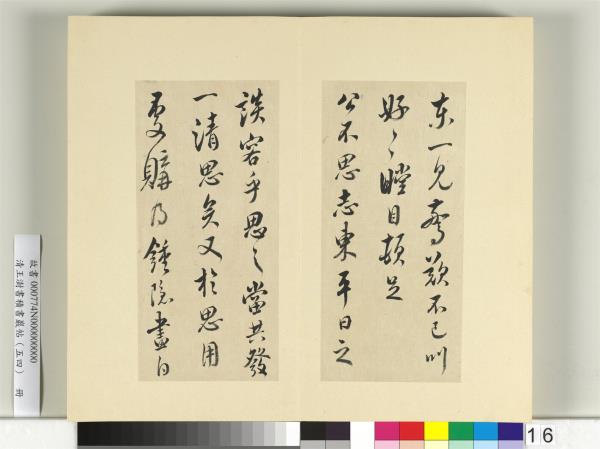 東一見驚歎不已叫
好々瞠目頓足
公不思志東平日之
談客乎思之當共發
一清思矣又於思用
處購乃鍾隱畫自
故書 000774N000000000
清王澍書積書巖帖（五四） 冊
16